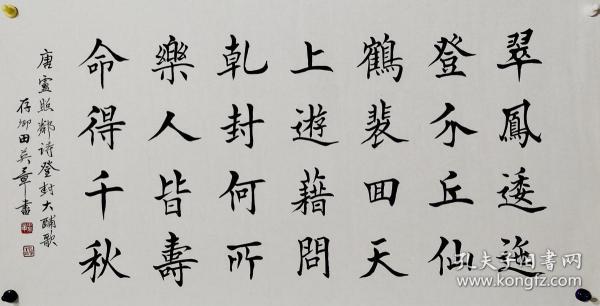 翠鳳逶迤
登介丘仙
鶴裴回天
上遊藉問
乾封何所
樂人皆壽
命得千秋
唐盧照鄰詩登封大酺歌
存卿田英章書
孔夫子旧书网
www.kongfz.com